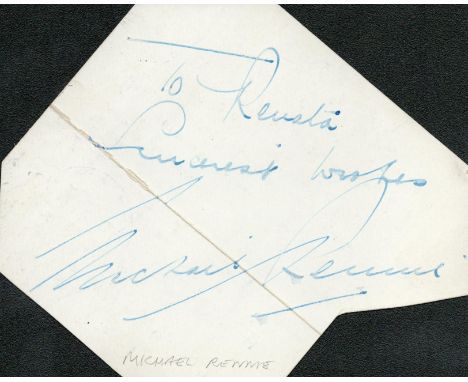 To Renata
Sincerest Wishes
Michael Rennie
MICHAEL RENNIE